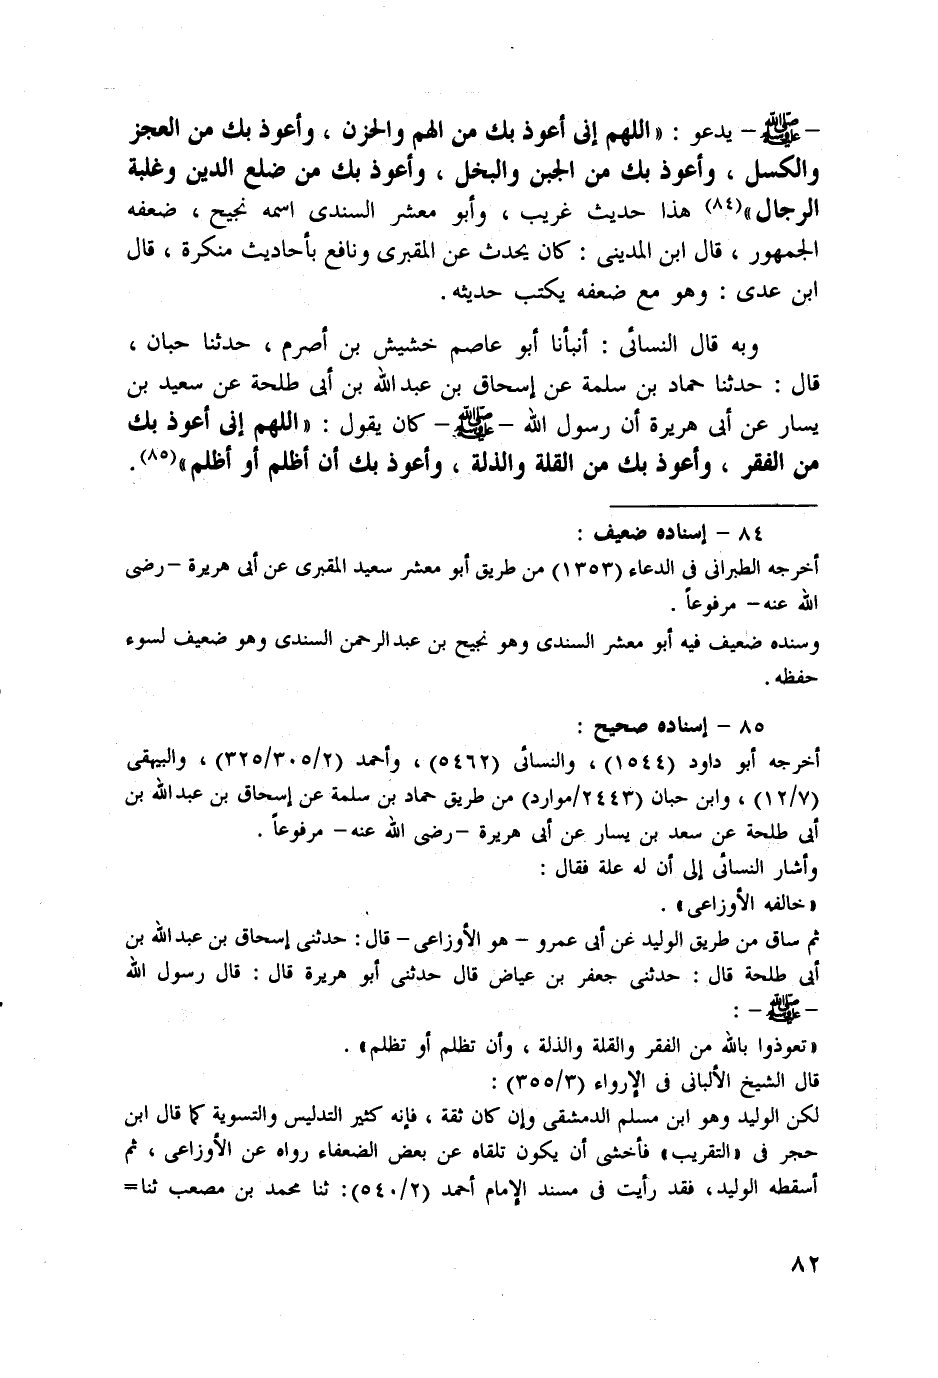 – ﷺ – يدعو : «اللهم إنى أعوذ بك من الهم والحزن ، وأعوذ بك من العجز
والكسل ، وأعوذ بك من الجبن والبخل ، وأعوذ بك من ضلع الدين وغلبة
الرجال»(٨٤) هذا حديث غريب ، وأبو معشر السندى اسمه نجيح ، ضعفه
الجمهور ، قال ابن المدينى : كان يحدث عن المقبرى ونافع بأحاديث منكرة ، قال
ابن عدى : وهو مع ضعفه يكتب حديثه .
وبه قال النسائى : أنبأنا أبو عاصم خشيش بن أصرم ، حدثنا حبان ،
قال : حدثنا حماد بن سلمة عن إسحاق بن عبد الله بن أبى طلحة عن سعيد بن
يسار عن أبى هريرة أن رسول الله – ﷺ – كان يقول : «اللهم إنى أعوذ بك
من الفقر ، وأعوذ بك من القلة والذلة ، وأعوذ بك أن أظلم أو أظلم»(٨٥) .
٨٤ – إسناده ضعيف :
أخرجه الطبرانى فى الدعاء (١٣٥٣) من طريق أبو معشر سعيد المقبرى عن أبى هريرة – رضى
الله عنه – مرفوعاً .
وسنده ضعيف فيه أبو معشر السندى وهو نجيح بن عبد الرحمن السندى وهو ضعيف لسوء
حفظه .
٨٥ – إسناده صحيح :
أخرجه أبو داود (١٥٤٤) ، والنسائى (٥٤٦٢) ، وأحمد (٣٢٥/٣٠٥/٢) ، والبيهقى
(١٢/٧) ، وابن حبان (٢٤٤٣/موارد) من طريق حماد بن سلمة عن إسحاق بن عبد الله بن
أبى طلحة عن سعد بن يسار عن أبى هريرة – رضى الله عنه – مرفوعاً .
وأشار النسائى إلى أن له علة فقال :
«خالفه الأوزاعى» .
ثم ساق من طريق الوليد عن أبى عمرو – هو الأوزاعى – قال : حدثنى إسحاق بن عبد الله بن
أبى طلحة قال : حدثنى جعفر بن عياض قال حدثنى أبو هريرة قال : قال رسول الله
– ﷺ – :
«تعوذوا بالله من الفقر والقلة والذلة ، وأن تظلم أو تظلم» .
قال الشيخ الألبانى فى الإرواء (٣٥٥/٣) :
لكن الوليد وهو ابن مسلم الدمشقى وإن كان ثقة ، فإنه كثير التدليس والتسوية كما قال ابن
حجر فى «التقريب» فأخشى أن يكون تلقاه عن بعض الضعفاء رواه عن الأوزاعى ، ثم
أسقطه الوليد ، فقد رأيت فى مسند الإمام أحمد (٥٤٠/٢) : ثنا محمد بن مصعب ثنا=
٨٢